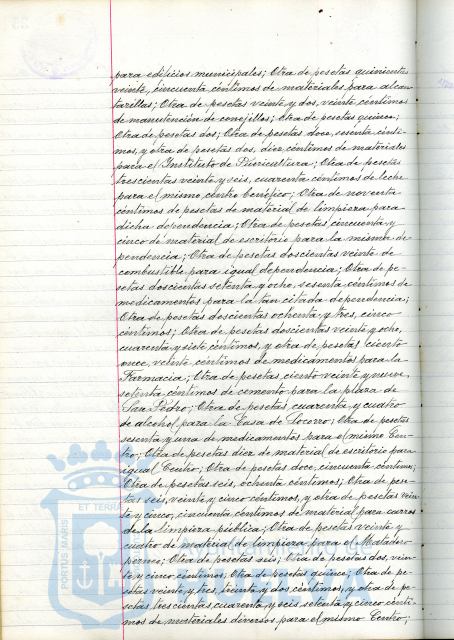 para edificios municipales; Otra de pesetas quinientas
veinte, cincuenta céntimos de materiales para alcan-
tarillas; Otra de pesetas veinte y dos, veinte céntimos
de manutención de conejillos; Otra de pesetas quince;
Otra de pesetas dos; Otra de pesetas doce, sesenta cénti-
mos, y otra de pesetas dos, diez céntimos de materiales
para el Instituto de Puericultura; Otra de pesetas
trescientas veinte y seis, cuarenta céntimos de leche
para el mismo centro benéfico; Otra de noventa
céntimos de pesetas de material de limpieza para
dicha dependencia; Otra de pesetas cincuenta y
cinco de material de escritorio para la misma de-
pendencia; Otra de pesetas doscientas veinte de
combustible para igual dependencia; Otra de pe-
setas doscientas setenta y ocho, sesenta céntimos de
medicamentos para la tan citada dependencia;
Otra de pesetas doscientas ochenta y tres, cinco
céntimos; Otra de pesetas doscientas veinte y ocho,
cuarenta y siete céntimos, y otra de pesetas ciento
once, veinte céntimos de medicamentos para la
Farmacia; Otra de pesetas, ciento veinte y nueve,
setenta céntimos de cemento para la plaza de
San Pedro; Otra de pesetas cuarenta y cuatro
de alcohol para la Casa de Socorro; Otra de pesetas
sesenta y una de medicamentos para el mismo Cen-
tro; Otra de pesetas diez de material de escritorio para
igual Centro; Otra de pesetas doce, cincuenta céntimos;
Otra de pesetas seis, ochenta céntimos; Otra de pese-
tas seis, veinte y cinco céntimos, y otra de pesetas vein-
te y cinco, cincuenta céntimos de material para carros
de la limpieza pública; Otra de pesetas veinte y
cuatro de material de limpieza para el Matadero
perneo; Otra de pesetas seis; Otra de pesetas dos, vein-
te y cinco céntimos; Otra de pesetas quince; Otra de
pesetas veinte y tres, treinta y dos céntimos, y otra de pe-
setas trescientas cuarenta y seis setenta y cinco cénti-
mos de materiales diversos para el mismo Centro;
ET TERRA
PORTUS MARIS